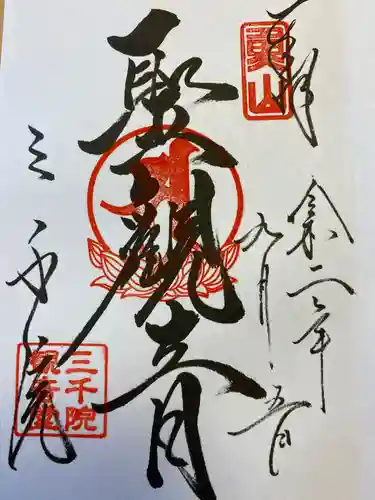 奉拝
令和二年
九月五日
聖観音
三千院
三千院